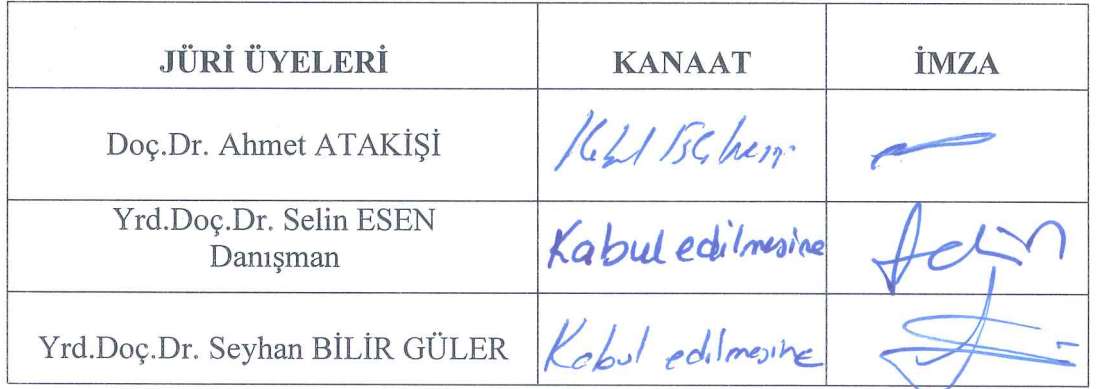 JÜRİ ÜYELERİ KANAAT İMZA
Doç.Dr. Ahmet ATAKİŞİ Kabul
Yrd.Doç.Dr. Selin ESEN
Danışman Kabul edilmesine
Yrd.Doç.Dr. Seyhan BİLİR GÜLER Kabul edilmesine